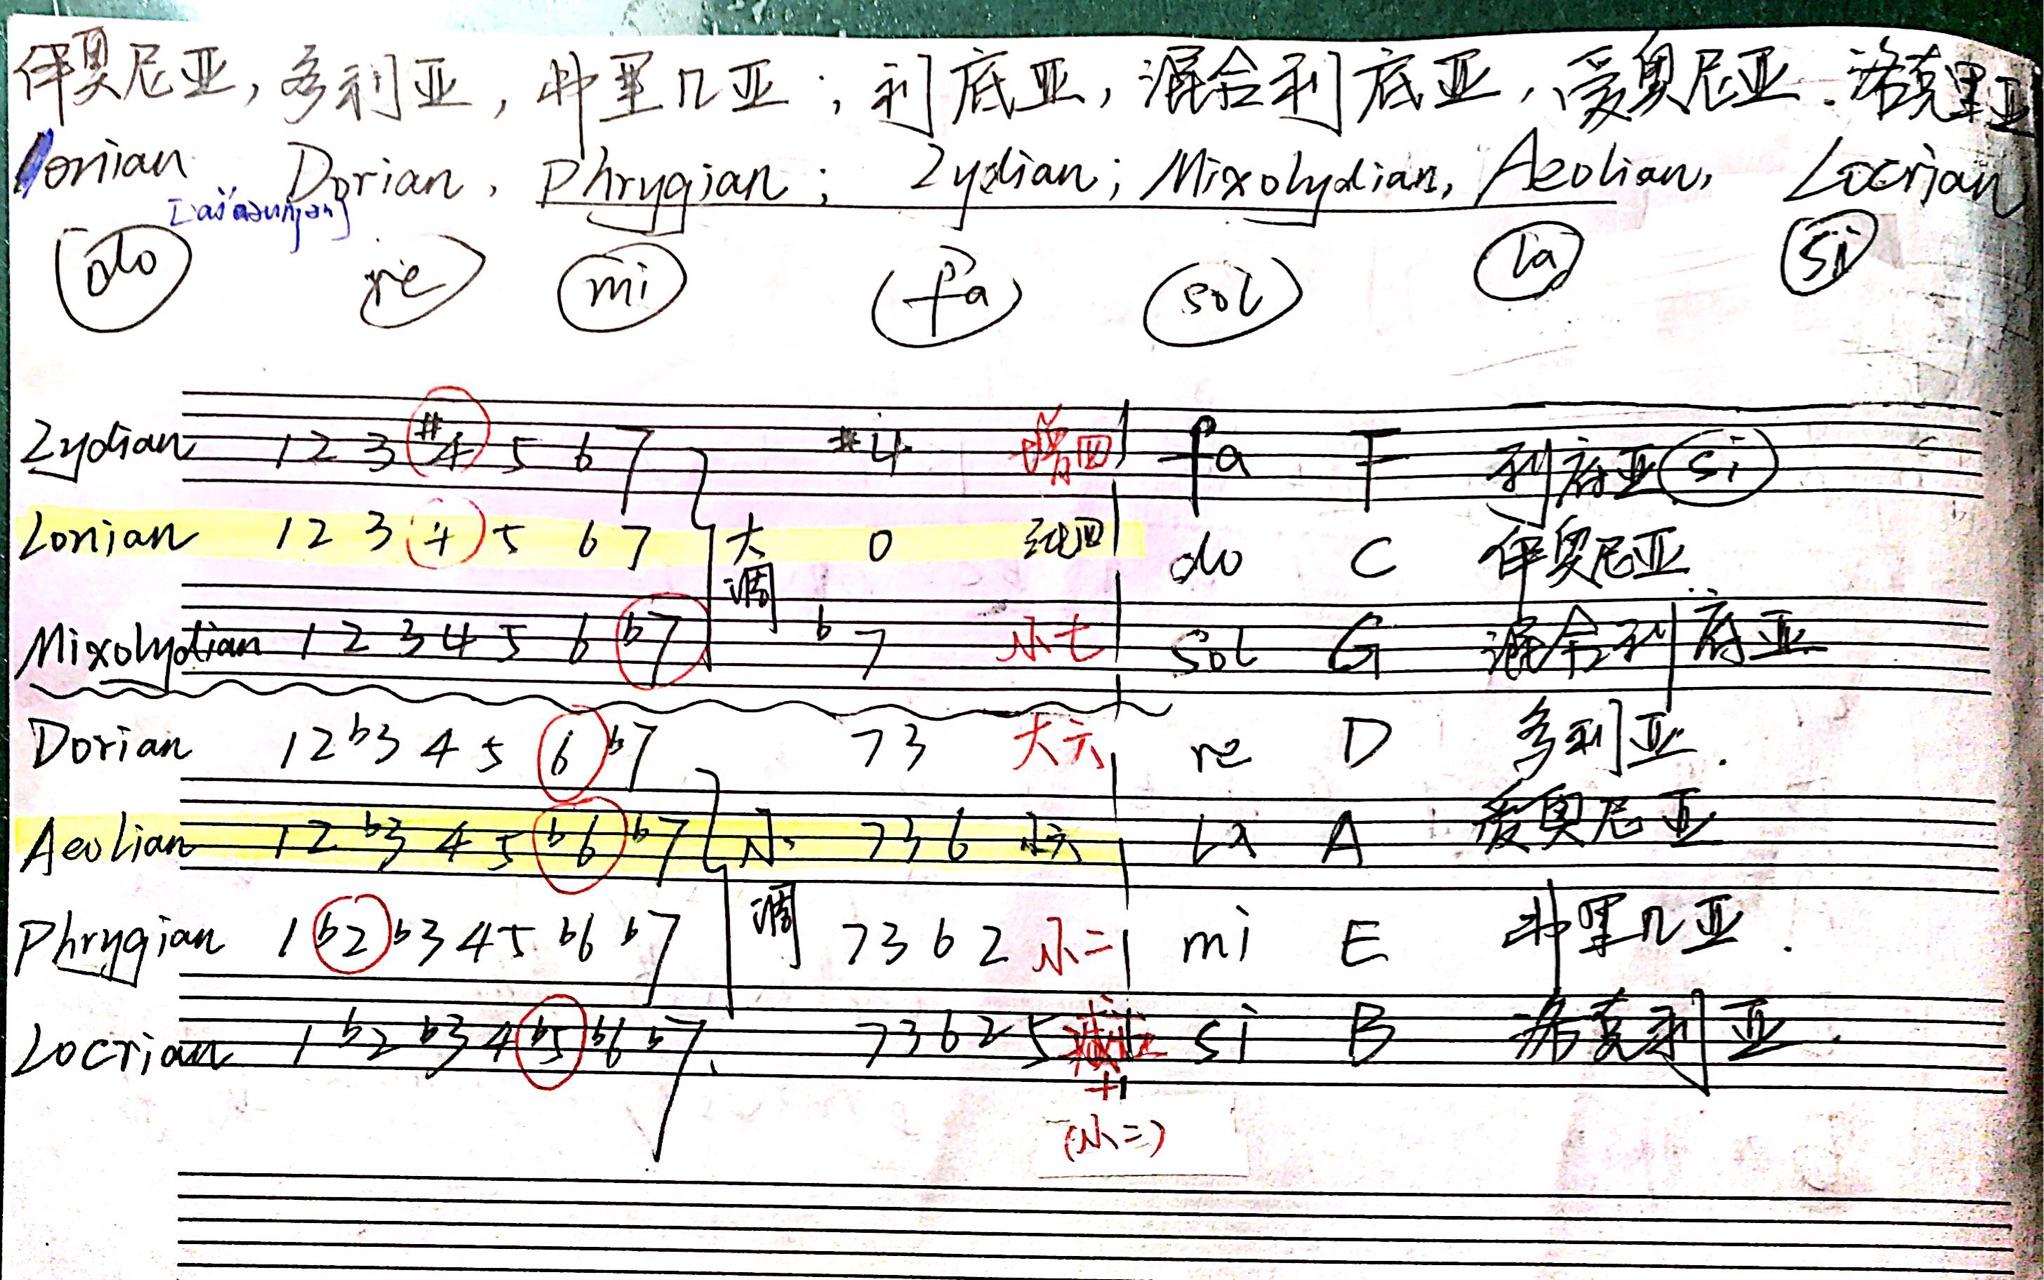 伊奥尼亚，多利亚，弗里几亚；利底亚，混合利底亚，爱奥尼亚．洛克里亚
Ionian Dorian, Phrygian; Lydian; Mixolydian, Aeolian, Locrian
do re mi fa sol la si
Lydian 1 2 3 #4 5 6 7 #4 增四 fa F 利底亚 si
Lonian 1 2 3 4 5 6 7 大调 0 纯四 do C 伊奥尼亚
Mixolydian 1 2 3 4 5 6 b7 b7 小七 sol G 混合利底亚
Dorian 1 2 b3 4 5 6 b7 73 大六 re D 多利亚.
Aeolian 1 2 b3 4 5 b6 b7 小调 736 小六 La A 爱奥尼亚
Phrygian 1 b2 b3 4 5 b6 b7 7362 小二 mi E 弗里几亚.
Locrian 1 b2 b3 4 b5 b6 b7. 73625 减五 si B 洛克利亚.
+1
(小二)